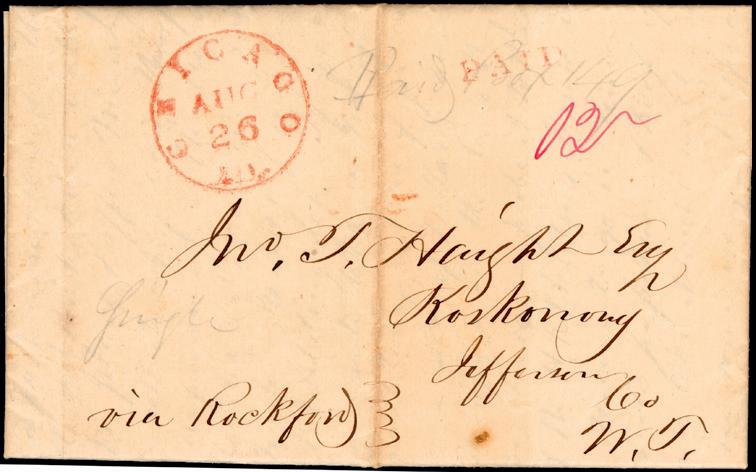 CHICAGO
AUG
26
Paid Box 149
PAID
12
Jno. T. Haight Esq
Koskonong
Jefferson Co
W. T.
Single
via Rockford